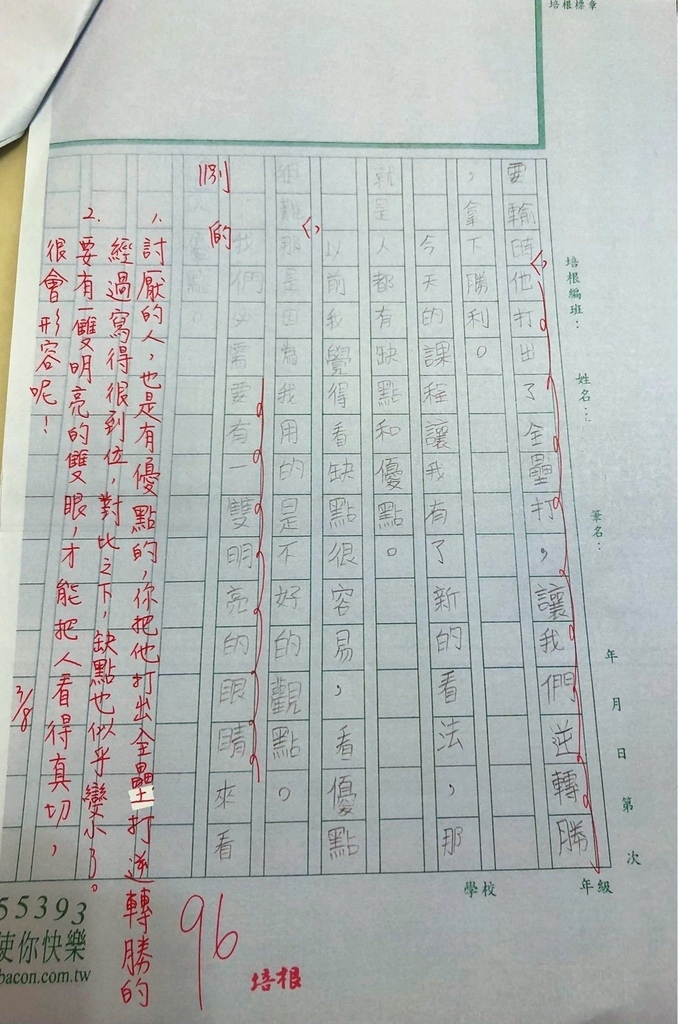 培根標章
培根編班：
姓名：
筆名：
年 月 日 第 次
學校 年級
要輸時他打出了全壘打，讓我們逆轉勝
，拿下勝利。
今天的課程讓我有了新的看法，那
就是人都有缺點和優點。
以前我覺得看缺點很容易，看優點
很難那是因為我用的是不好的觀點。
我們必需要有一雙明亮的眼睛來看
人
別的
1.討厭的人，也是有優點的，你把他打出全壘打逆轉勝的
經過寫得很到位，對比之下，缺點也似乎變小了。
2.要有一雙明亮的雙眼，才能把人看得真切，
很會形容呢！
3/8
96
培根
55393
使你快樂
bacon.com.tw